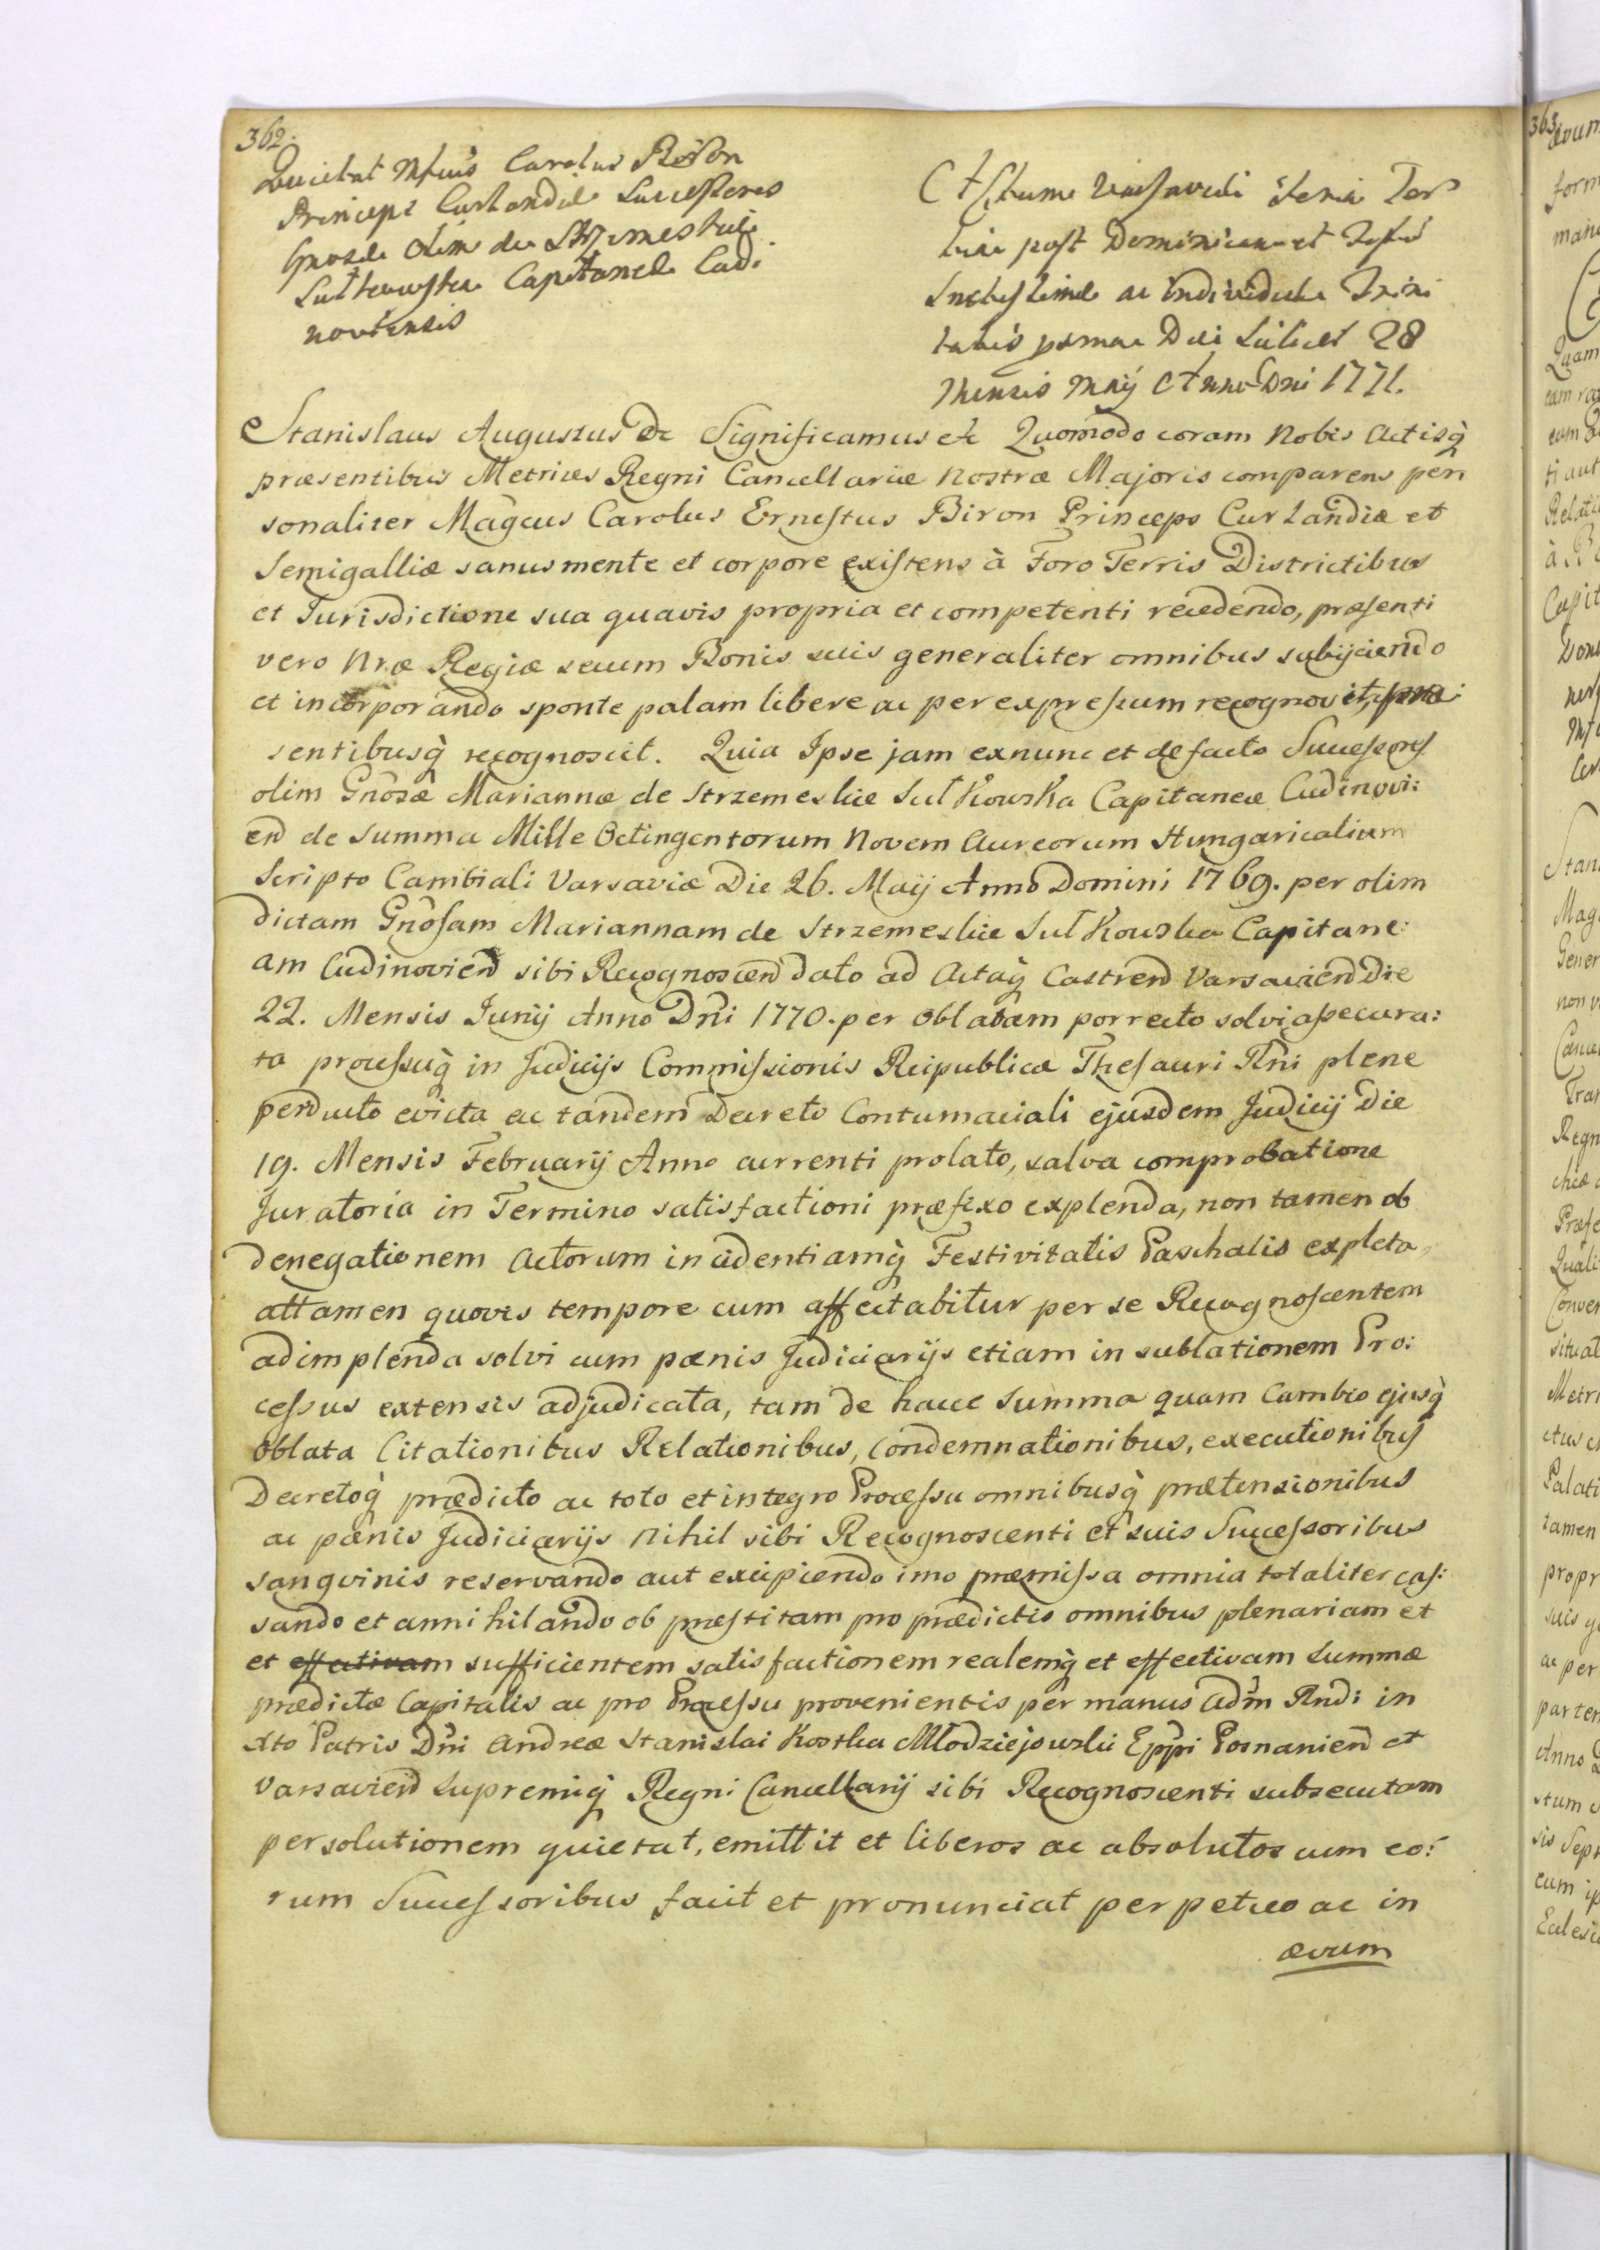 362.
Quietat Mfcus Carolus Biron
Princeps Curlandiæ Successores
Gnosæ olim de Strzemeskie
Sułkowska Capitaneæ Cudi:
noviensis
Actum Varsaviæ Feria Ter
tia post Dominicam et Festū
Sanctissimæ ac Individuæ Trini
tatis pxma Die Scilicet 28
Mensis Maÿ Anno Dni 1771.
Stanislaus Augustus Dc Significamus etc Quomodo coram Nobis Actisq̀
præsentibus Metrices Regni Cancellariæ Nostræ Majoris comparens per
sonaliter Magcus Carolus Ernestus Biron Princeps Curlandiæ et
Semigalliæ sanus mente et corpore existens à Foro Terris Districtibus
et Jurisdictione sua quavis propria et competenti recedendo, præsenti
vero Nræ Regiæ secum Bonis suis generaliter omnibus subijciendo
et incorporando sponte palam libere ac per expressum recognovit, præ:
sentibusq̀ recognoscit. Quia Ipse jam exnunc et de facto Successores
olim Gnosæ Mariannæ de Strzemeskie Sułkowska Capitaneæ Cudinovi:
en de Summa Mille Octingentorum Novem Aureorum Hungaricalium
Scripto Cambiali Varsaviæ Die 26. Maÿ Anno Domini 1769. per olim
dictam Gnosam Mariannam de Strzemeskie Sułkowska Capitane:
am Cudinovien sibi Recognoscen dato ad Actaq̀ Castren Varsavien Die
22. Mensis Junÿ Anno Dni 1770. per oblatam porrecto solvi assecura:
ta processuq̀ in Judicÿs Commissionis Reipublicæ Thesauri Rni plene
perducto evicta ac tandem Decreto Contumaciali ejusdem Judicÿ Die
19. Mensis Februarÿ Anno currenti prolato, salva comprobatione
Juratoria in Termino satisfactioni præfixo explenda, non tamen ob
denegationem Actorum incidentiamq̀ Festivitatis Paschalis expleta,
attamen quovis tempore cum affectabitur per se Recognoscentem
adimplenda solvi cum pænis Judiciarÿs etiam in sublationem Pro:
cessus extensis adjudicata, tam de hacce Summa quam Cambio ejusq̀
oblata Citationibus Relationibus, Condemnationibus, executionibus
Decretoq̀ prædicto ac toto et integro Processu omnibusq̀ prætensionibus
ac pænis Judiciarÿs Nihil sibi Recognoscenti et suis Successoribus
sanguinis reservando aut excipiendo imo præmissa omnia totaliter cas:
sando et annihilando ob præstitam pro prædictis omnibus plenariam et
et effectivam sufficientem satisfactionem realemq̀ et effectivam Summæ
prædictæ Capitalis ac pro Processu provenientis per manus Adm Rndi in
Xto Patris Dni Andreæ Stanislai Kostka Młodziejowski Eppi Posnanien et
Varsavien Supremiq̀ Regni Cancellarÿ sibi Recognoscenti subsecutam
persolutionem quietat, emittit et liberos ac absolutos cum eo:
rum Successoribus facit et pronunciat perpetuo ac in
ævum